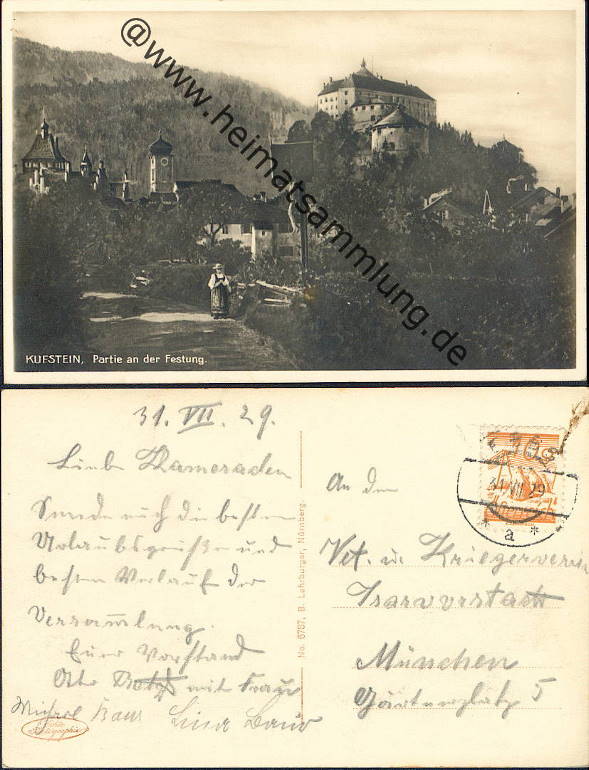 @www.heimatsammlung.de
KUFSTEIN, Partie an der Festung.
31. VII. 29.
Liebe Kameraden
Sende euch die besten
Urlaubsgrüße und
besten Verlauf der
Versammlung.
Euer Vorstand
Otto mit Frau
Michael Baur Lina Baur
No. 6787, B. Lehrburger, Nürnberg.
An den
Vet. u. Kriegerverein
Isarvorstadt
München
Gärtnerplatz 5
31 VII 29
* a *